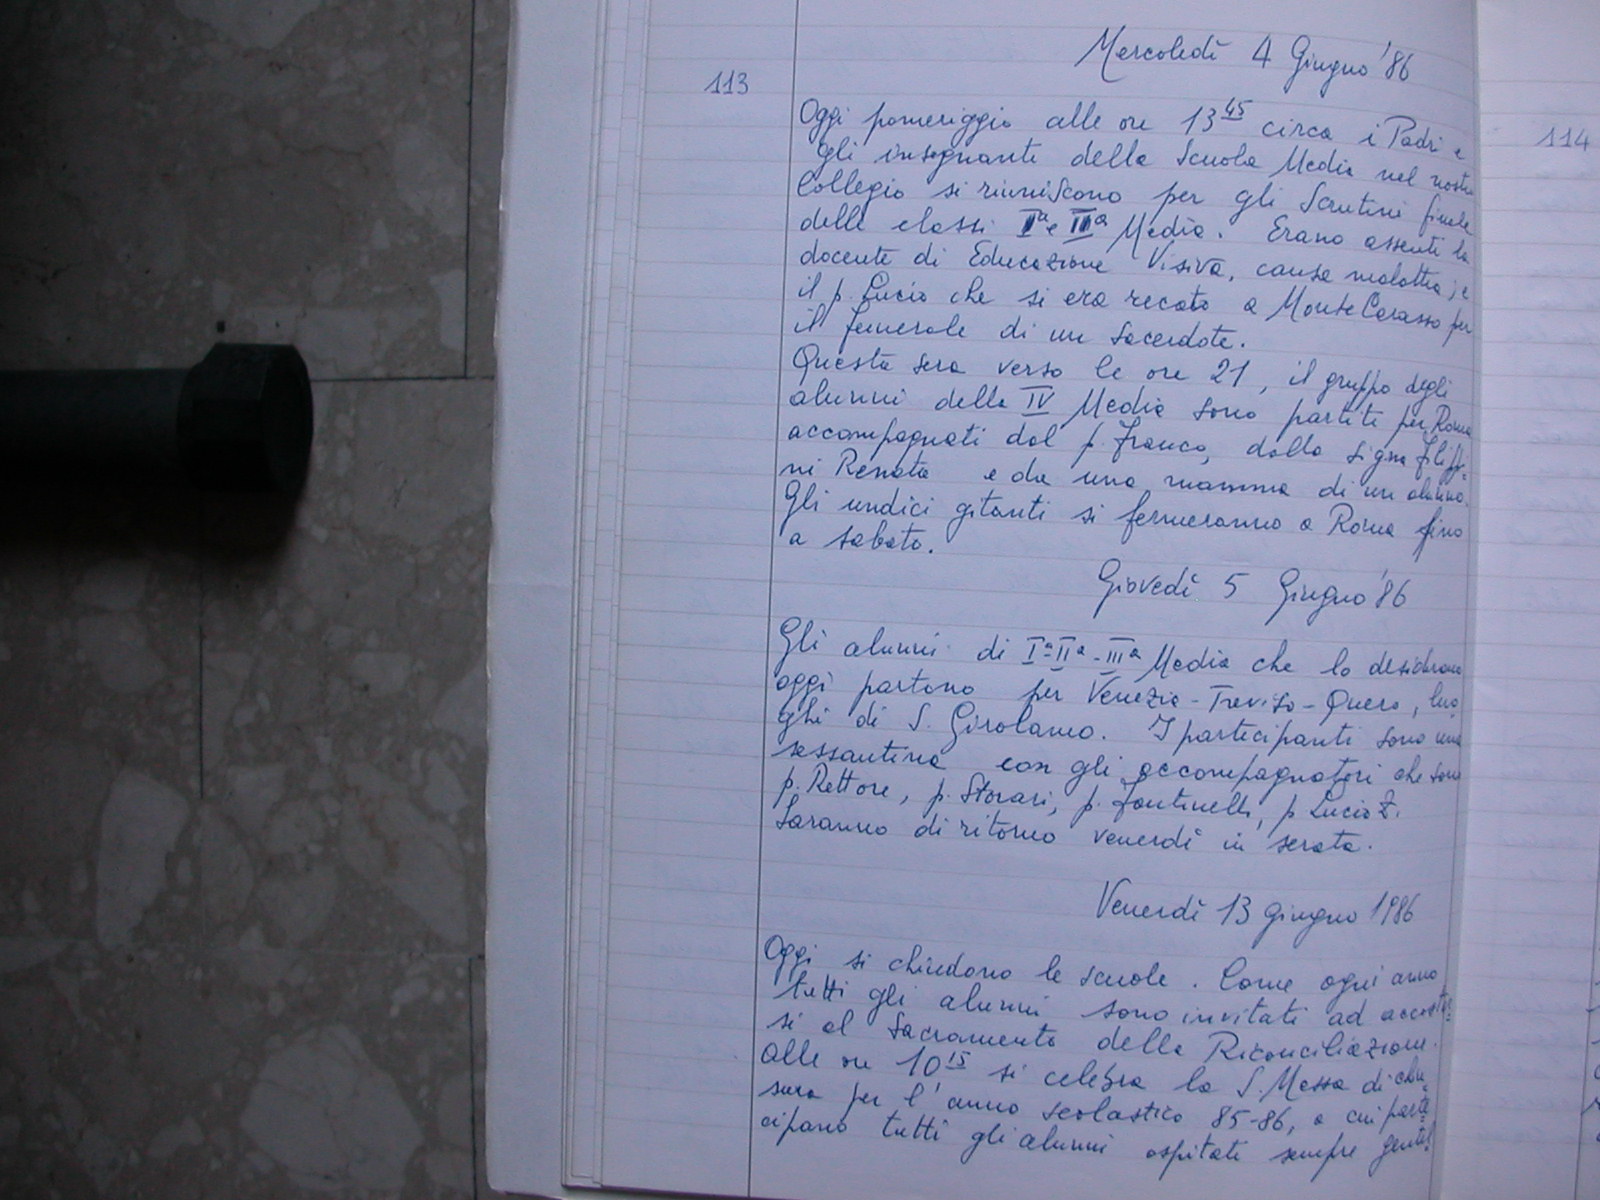 Mercoledì 4 Giugno '86
113
Oggi pomeriggio alle ore 13 45 circa i Padri e
gli insegnanti della Scuola Media nel nostro
Collegio si riuniscono per gli Scrutini finale
delle classi Iª e IIIª Media. Erano assenti la
docente di Educazione Visiva, causa malattia; e
il p. Lucio che si era recato a Monte Carasso per
il funerale di un sacerdote.
Questa sera verso le ore 21, il gruppo degli
alunni della IV Media sono partiti per Roma
accompagnati dal p. Franco, dalla sigra Filippi-
ni Renata e da una mamma di un alunno.
Gli undici gitanti si fermeranno a Roma fino
a sabato.
Giovedì 5 Giugno '86
Gli alunni di Iª-IIª-IIIª Media che lo desiderano
oggi partono per Venezia-Treviso-Quero, luo-
ghi di S. Girolamo. I partecipanti sono una
sessantina con gli accompagnatori che sono
p. Rettore, p. Storari, p. Fontinelli, p Lucio Z.
Saranno di ritorno venerdì in serata.
Venerdì 13 giugno 1986
Oggi si chiudono le scuole. Come ogni anno
tutti gli alunni sono invitati ad accostar-
si al Sacramento della Riconciliazione.
Alle ore 10 15 si celebra la S. Messa di chiu-
sura per l'anno scolastico 85-86, a cui parte-
cipano tutti gli alunni ospitati sempre gentil
114